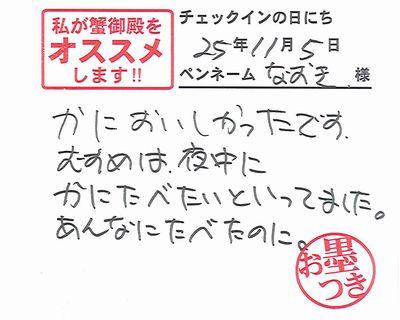 私が蟹御殿を
オススメ
します!!
チェックインの日にち
25年11月5日
ペンネーム なおき 様
かに おいしかったです.
むすめは、夜中に
かにたべたいといってました。
あんなにたべたのに。
お墨つき